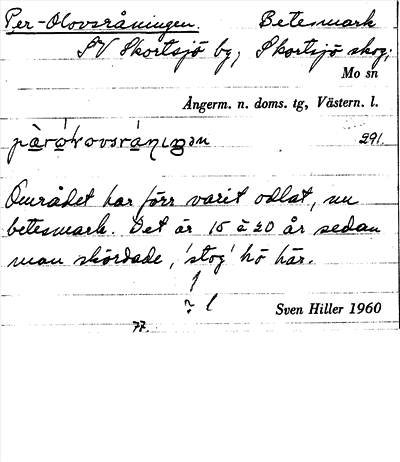 Per-Olovsråningen. Betesmark
SV Skortsjö by, Skortsjö skog;
Mo sn
Ångerm. n. doms. tg, Västern. l.
291.
Området har förr varit odlat, nu
betesmark. Det är 15 à 20 år sedan
man skördade, 'stog' hö här.
? l
Sven Hiller 1960
77.